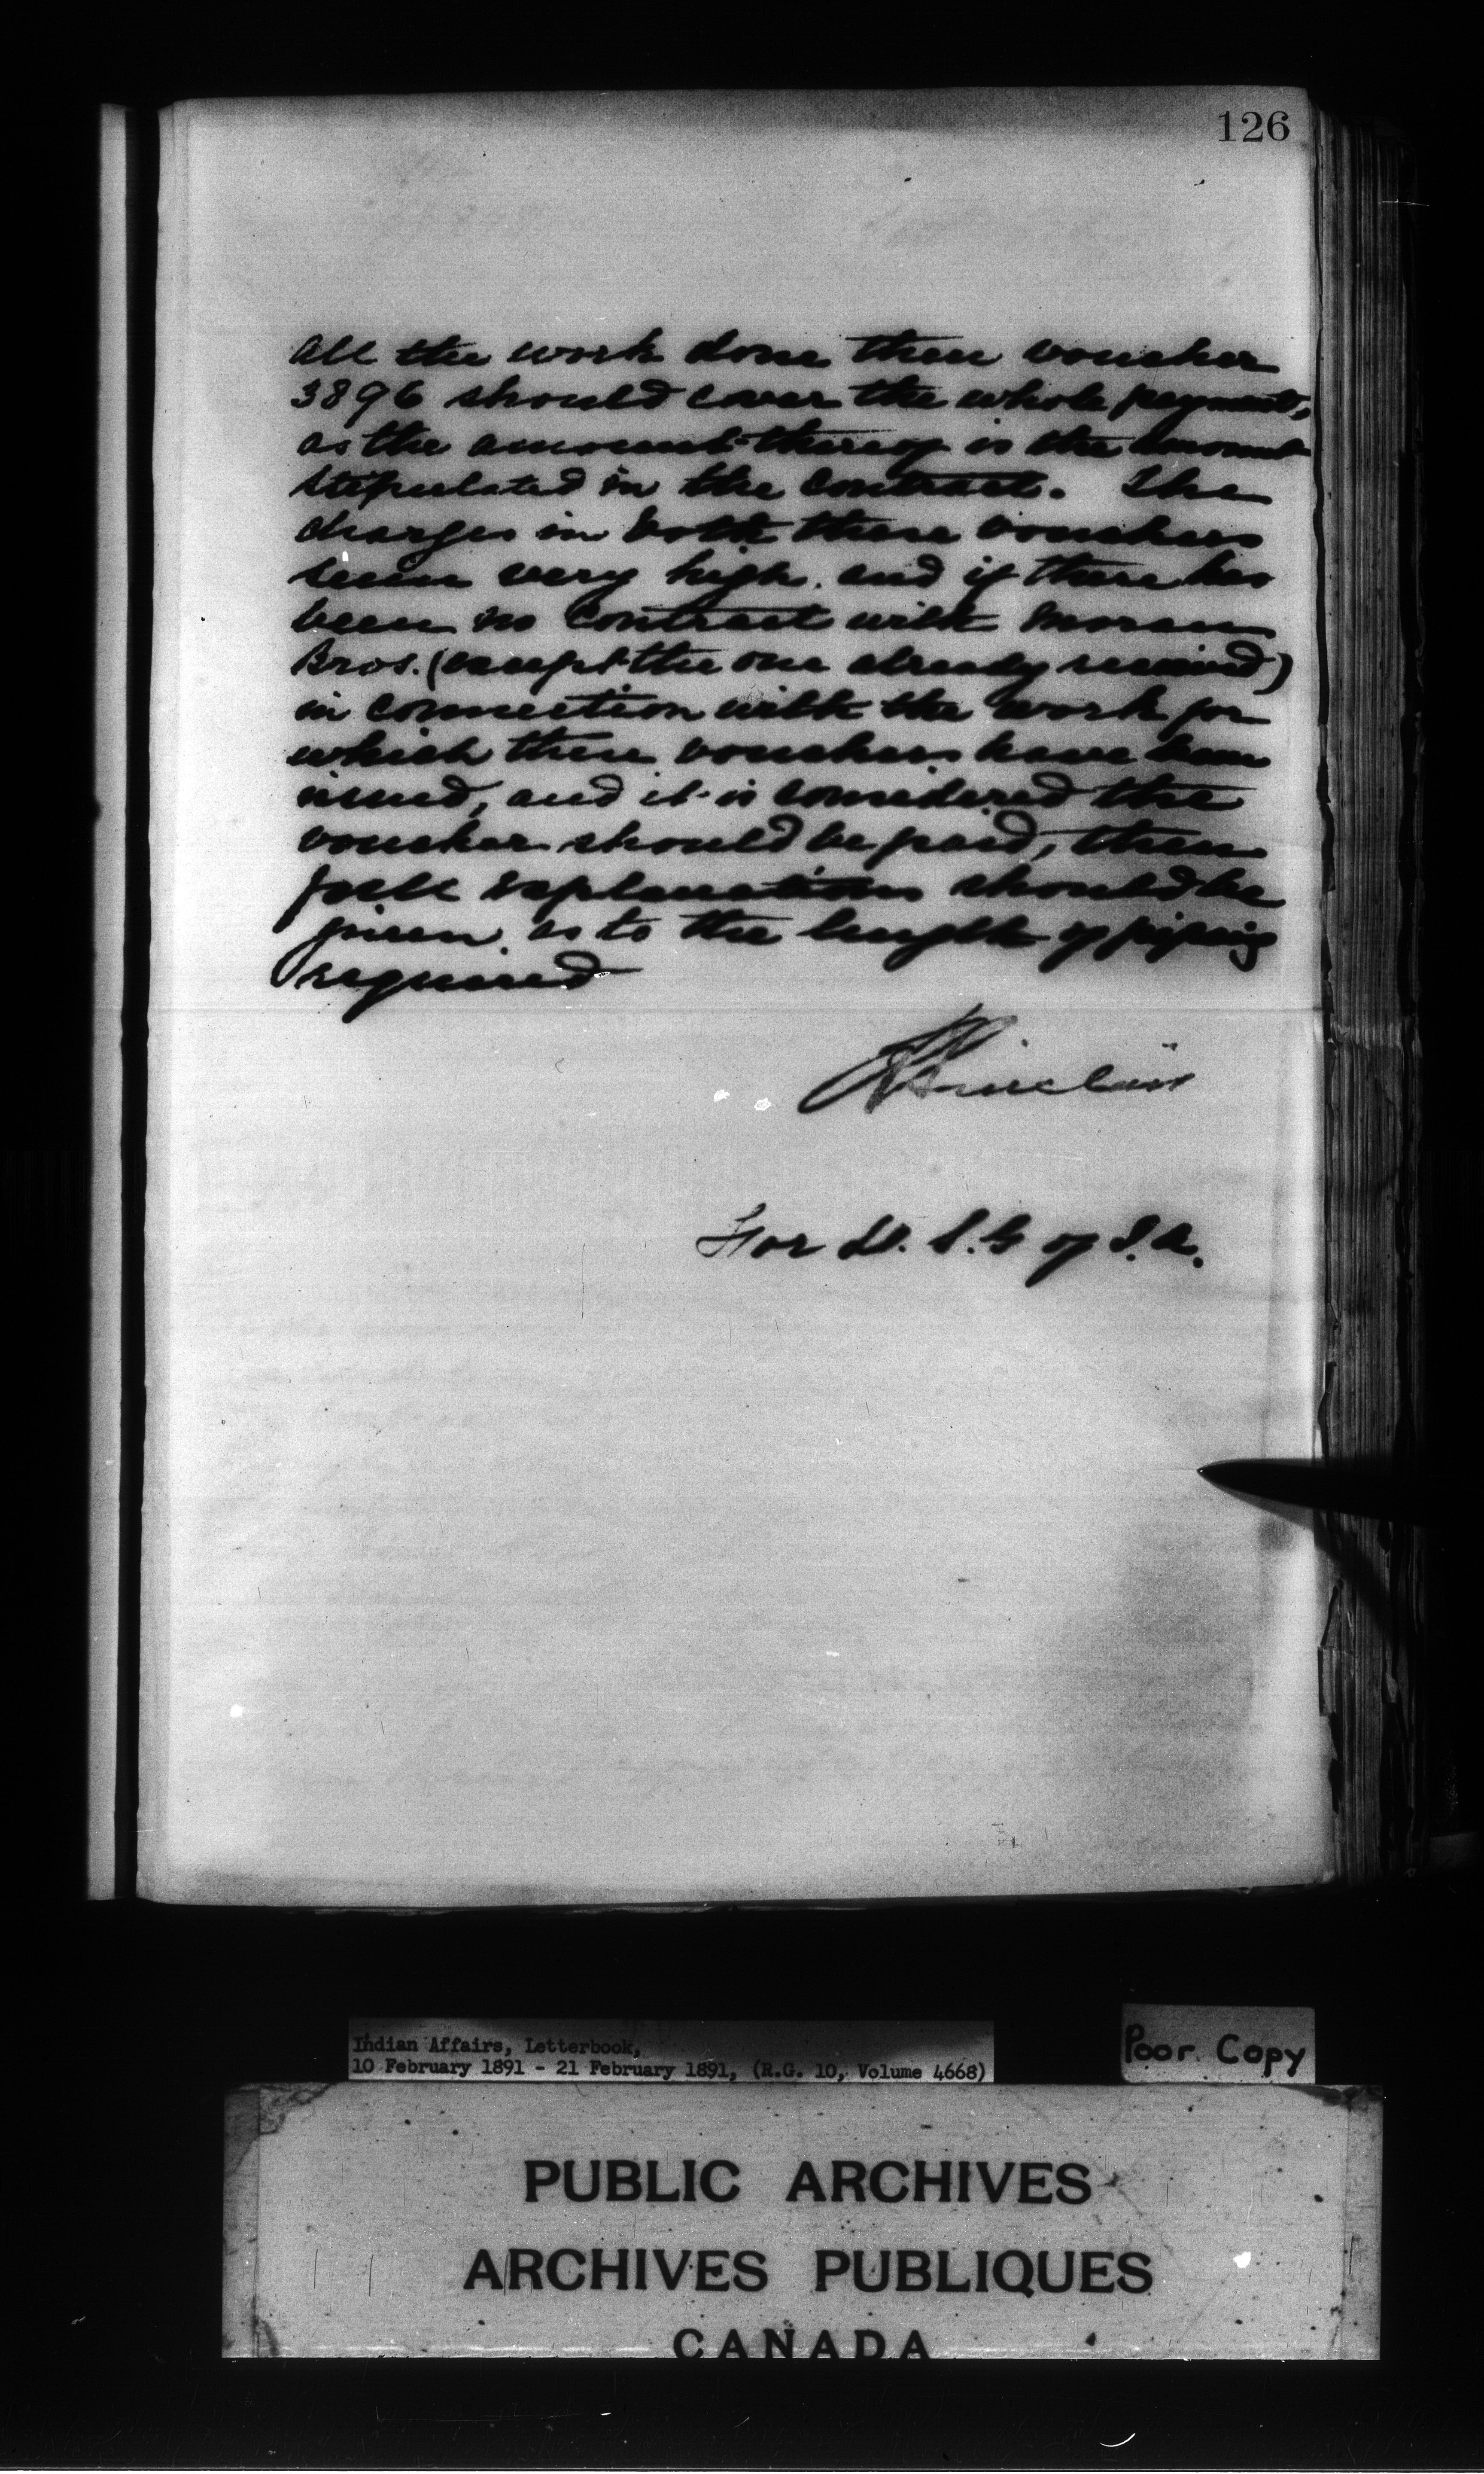 126
all the work done then voucher
3896 should cover the whole payment,
as the amount thereof is the amount
stipulated in the contract. The
charges in both these vouchers
seem very high, and if there has
been no contract with Moran
Bros. (except the one already received)
in connection with the work for
which these vouchers have been
issued, and it is considered the
voucher should be paid, then
full explanations should be
given as to the length of piping
required
Sinclair
For D. S. G of I. A.
Indian Affairs, Letterbook,
10 February 1891 - 21 February 1891, (R.G. 10, Volume 4668)
Poor Copy
PUBLIC ARCHIVES
ARCHIVES PUBLIQUES
CANADA